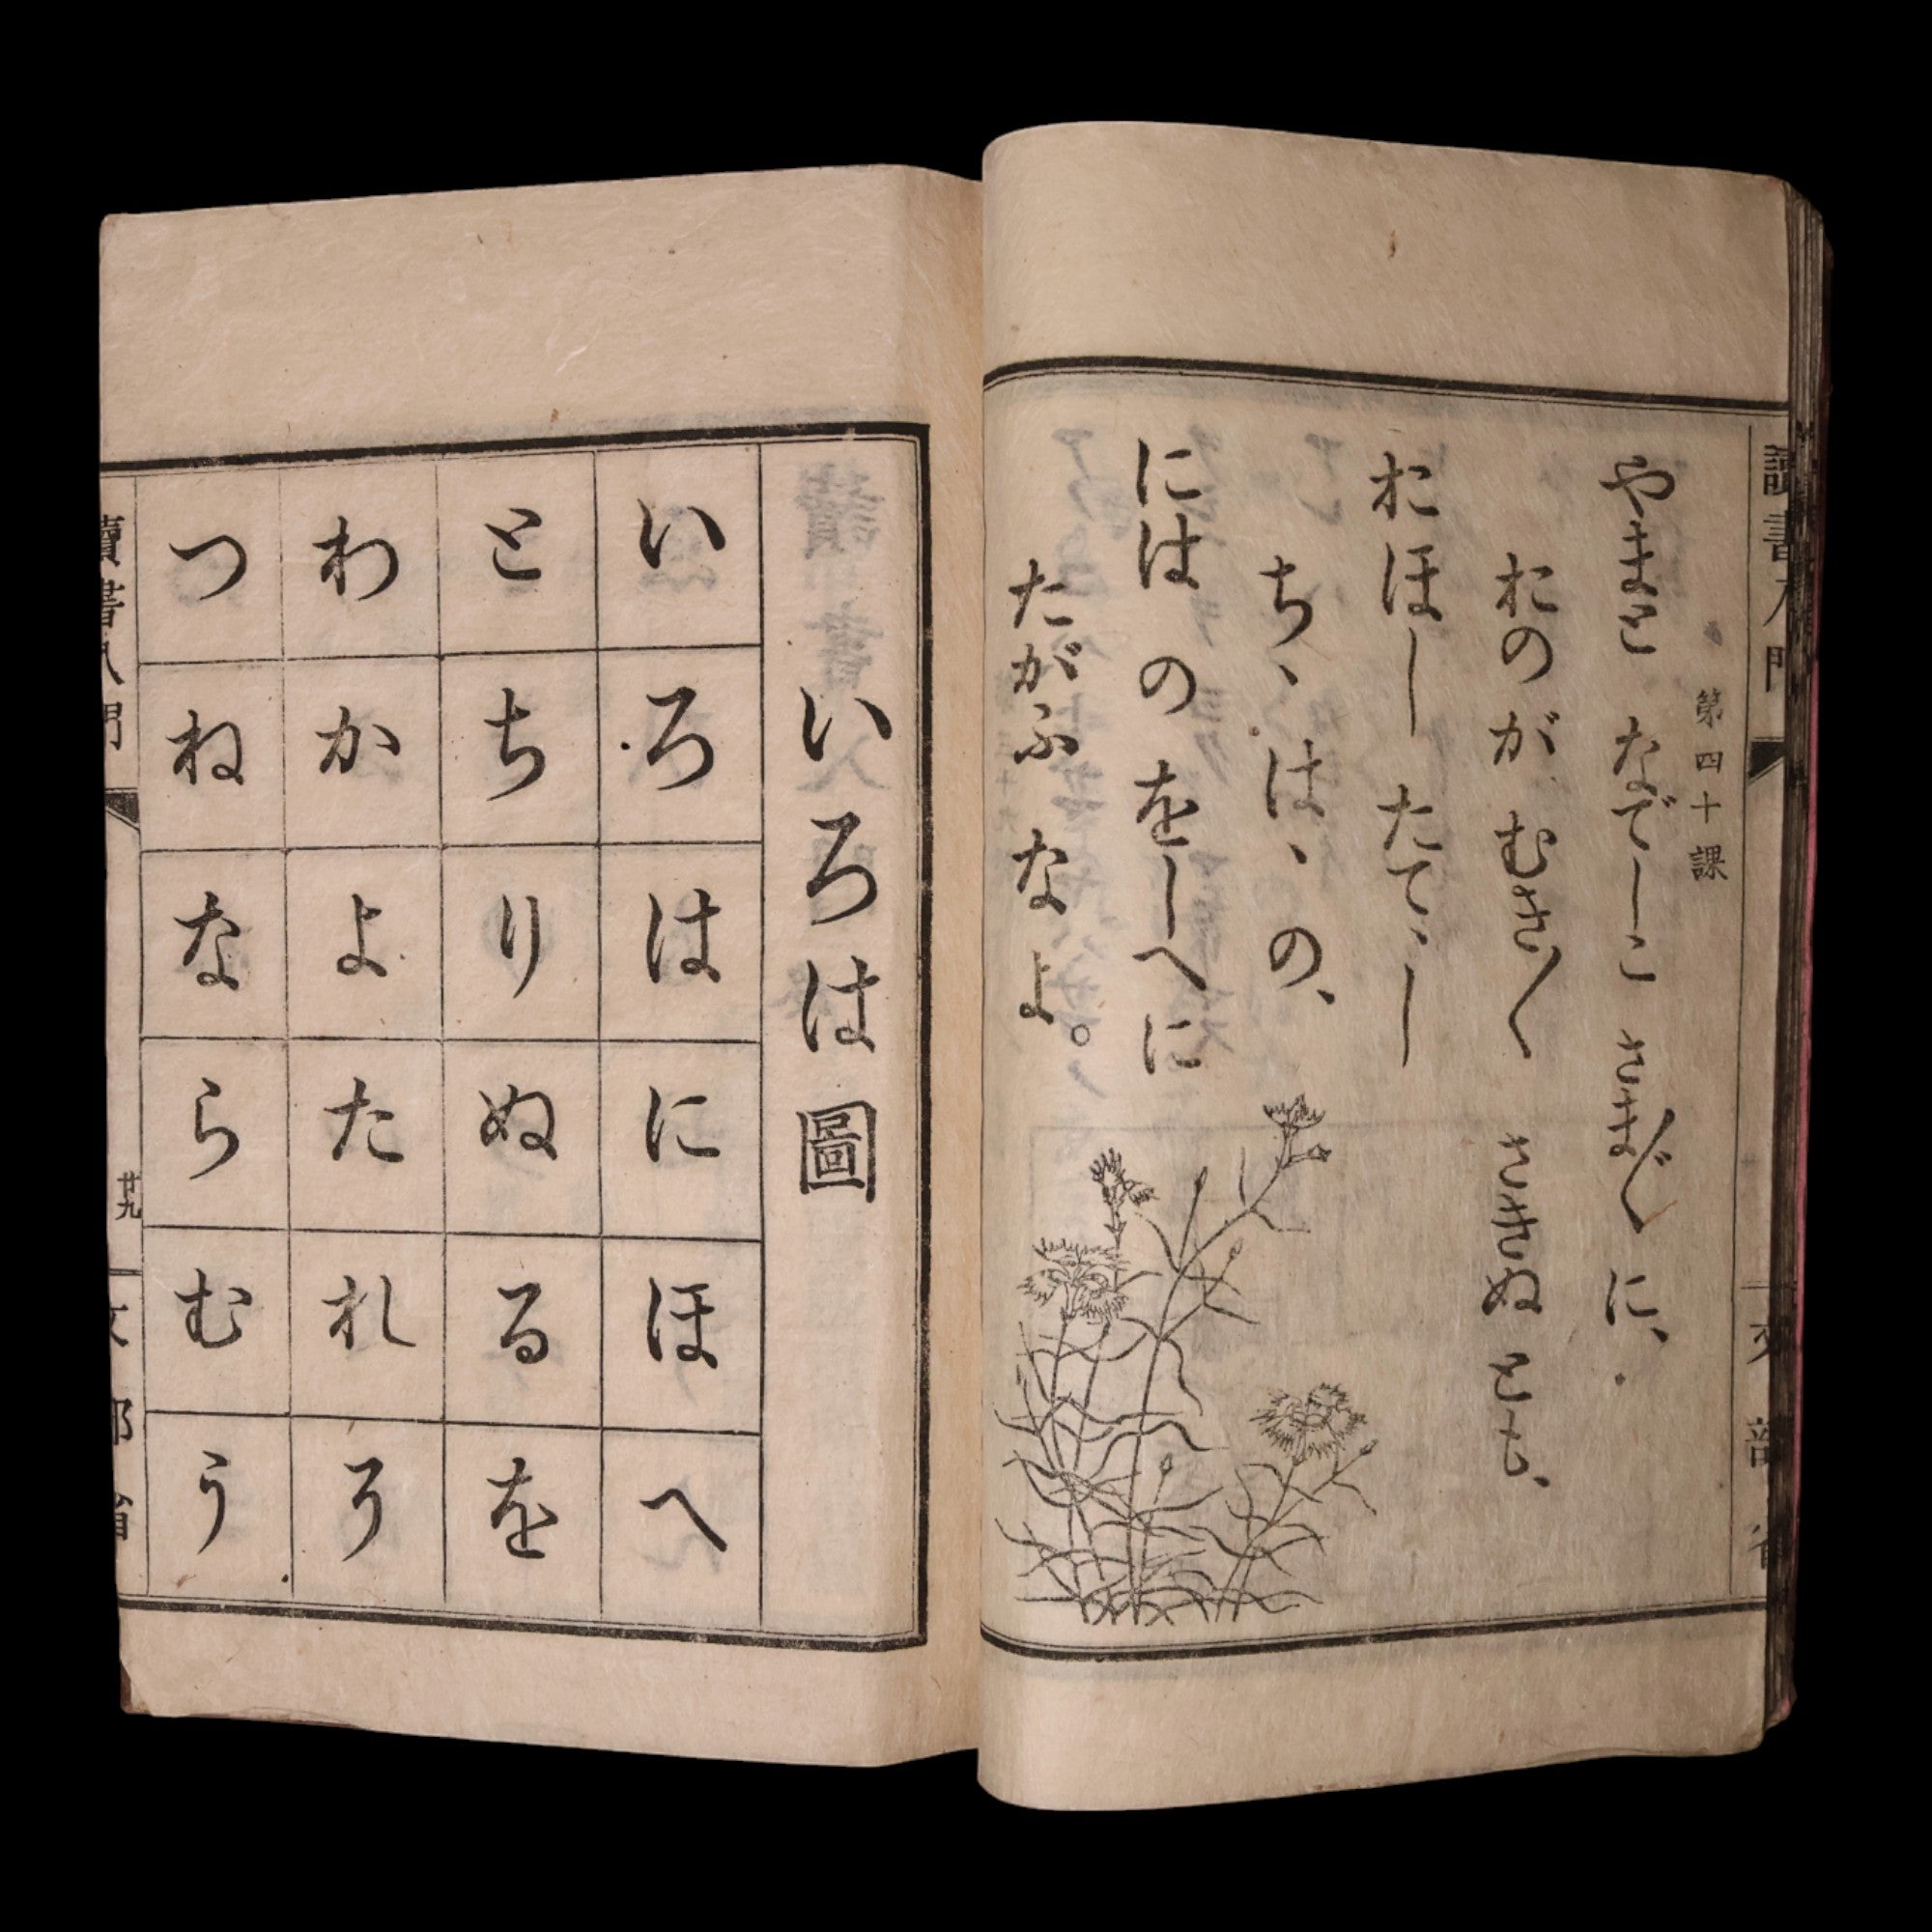 讀書入門
文部省
第四十課
やまと なでしこ さま〴〵 に、
おの が むき〳〵 さきぬ とも、
おほし たてゝし
ちゝ はゝ の、
には の をしへに
たがふ なよ。
いろは圖
いろはにほへ
とちりぬるを
わかよたれそ
つねならむう
讀書入門
廿九
文部省